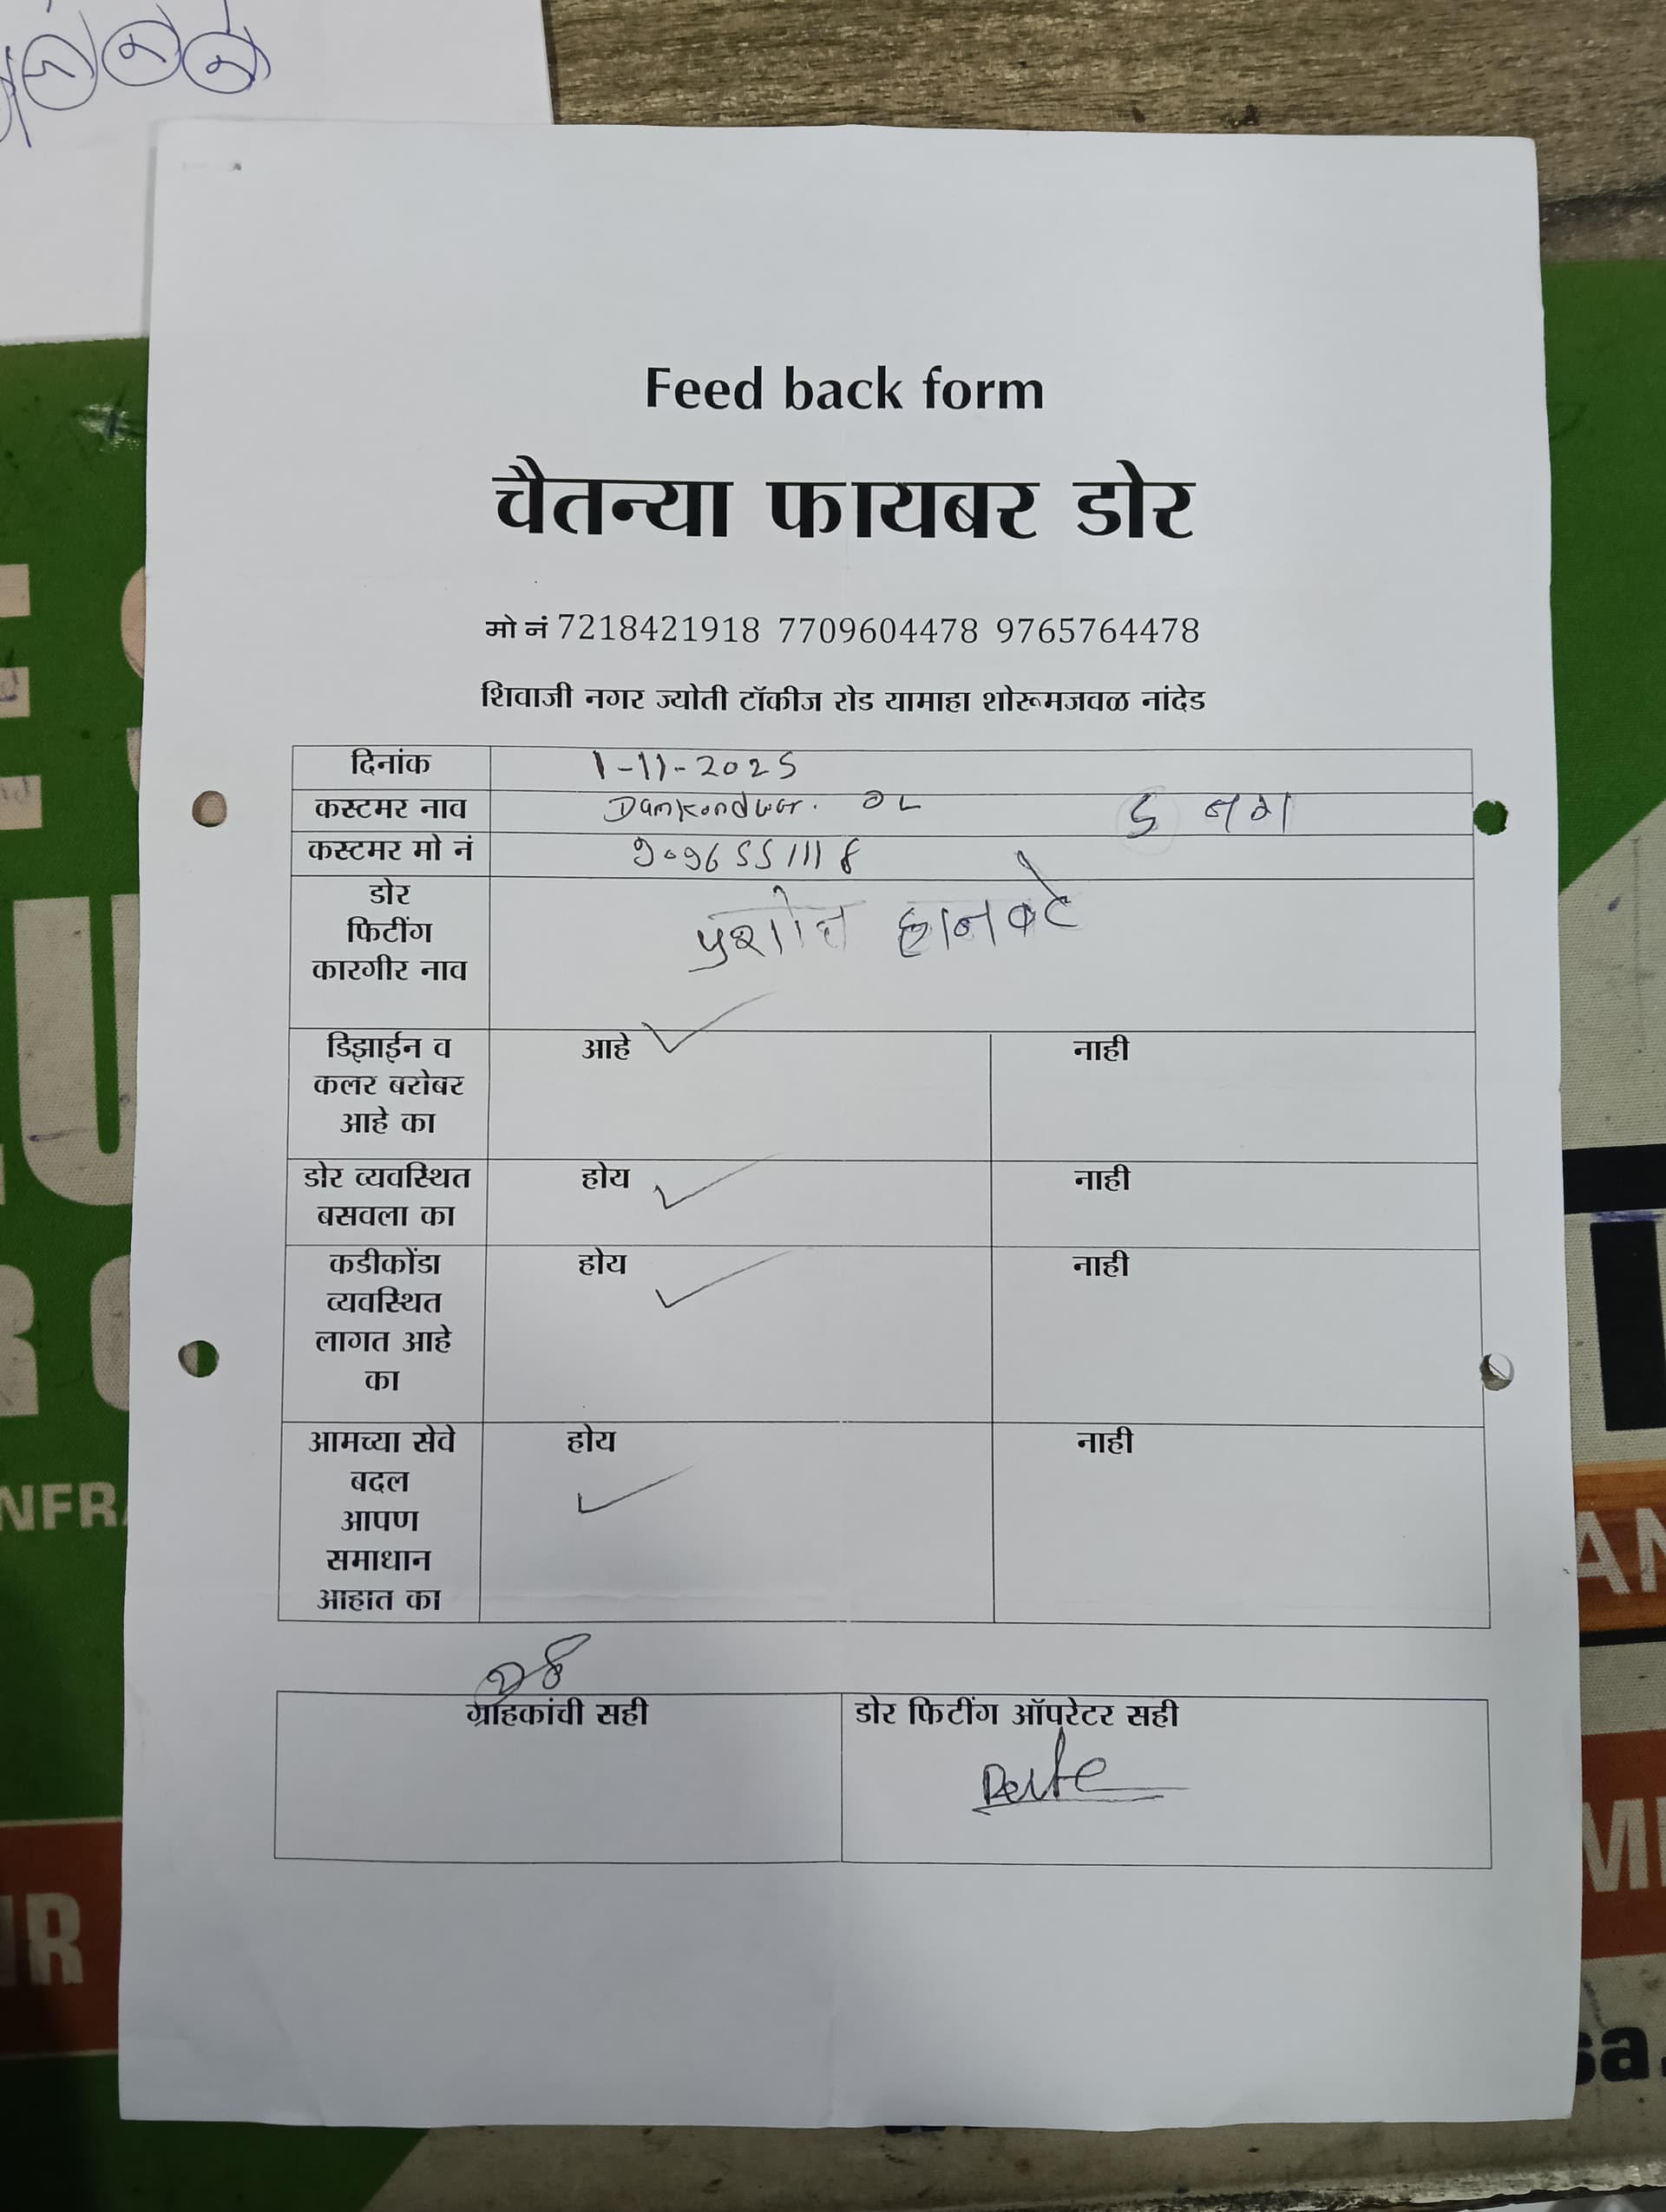 Feed back form
चैतन्या फायबर डोर
मो नं 7218421918 7709604478 9765764478
शिवाजी नगर ज्योती टॉकीज रोड यामाहा शोरूमजवळ नांदेड
दिनांक 1-11-2025
कस्टमर नाव Damkondwar. 5 नग
कस्टमर मो नं 9096551118
डोर
फिटींग
कारगीर नाव
डिझाईन व आहे ✓ नाही
कलर बरोबर
आहे का
डोर व्यवस्थित होय ✓ नाही
बसवला का
कडीकोंडा होय ✓ नाही
व्यवस्थित
लागत आहे
का
आमच्या सेवे होय ✓ नाही
बदल
आपण
समाधान
आहात का
ग्राहकांची सही डोर फिटींग ऑपरेटर सही
NFRA